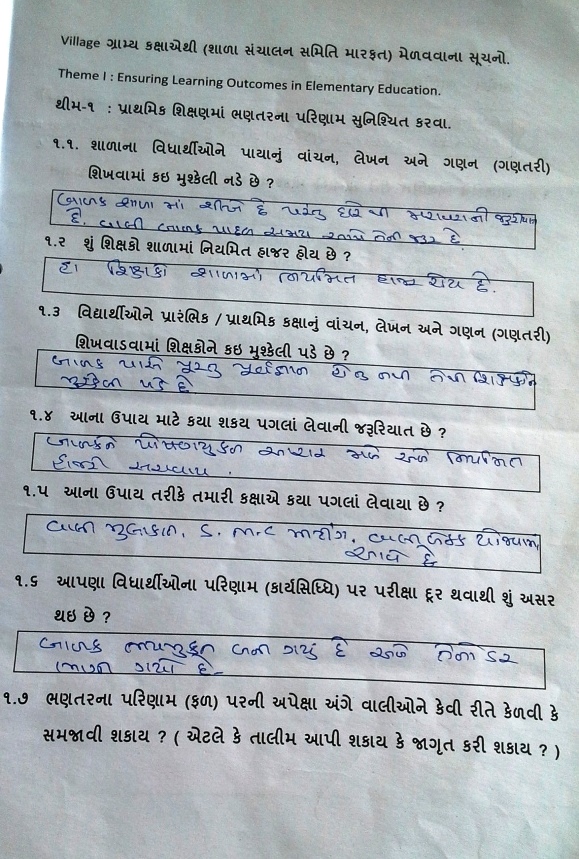 Village ગ્રામ્ય કક્ષાએથી (શાળા સંચાલન સમિતિ મારફત) મેળવવાના સૂચનો.
Theme I : Ensuring Learning Outcomes in Elementary Education.
થીમ-૧ : પ્રાથમિક શિક્ષણમાં ભણતરના પરિણામ સુનિશ્ચિત કરવા.
૧.૧. શાળાના વિધાર્થીઓને પાયાનું વાંચન, લેખન અને ગણન (ગણતરી)
શિખવામાં કઇ મુશ્કેલી નડે છે ?
બાળક શાળા માં શીખે છે પરંતુ ઘરે થી મહાવરાની જરૂરીયાત
છે. વાલી બાળક પાછળ સમય આપે તેની જરૂર છે
૧.૨ શું શિક્ષકો શાળામાં નિયમિત હાજર હોય છે ?
હા શિક્ષકો શાળામાં નિયમિત હાજર હોય છે.
૧.૩ વિદ્યાર્થીઓને પ્રારંભિક / પ્રાથમિક કક્ષાનું વાંચન, લેખન અને ગણન (ગણતરી)
શિખવાડવામાં શિક્ષકોને કઇ મુશ્કેલી પડે છે ?
બાળક પાસે પુરતુ પૂર્વજ્ઞાન હોતુ નથી તેથી શિક્ષકોને
મુશ્કેલી પડે છે
૧.૪ આના ઉપાય માટે કયા શકય પગલાં લેવાની જરૂરિયાત છે ?
બાળકને પોષણયુક્ત આહાર મળે અને નિયમિત
હાજરી
૧.૫ આના ઉપાય તરીકે તમારી કક્ષાએ કયા પગલાં લેવાયા છે ?
વાલી મુલાકાત, S.M.C મીટીંગ, વાલી બેઠક યોજવામાં
આવે છે
૧.૬ આપણા વિધાર્થીઓના પરિણામ (કાર્યસિધ્ધિ) પર પરીક્ષા દૂર થવાથી શું અસર
થઇ છે ?
બાળક ભયમુક્ત બની ગયું છે અને તેનો ડર
ભાગી ગયો છે.
૧.૭ ભણતરના પરિણામ (ફળ) પરની અપેક્ષા અંગે વાલીઓને કેવી રીતે કેળવી કે
સમજાવી શકાય ? ( એટલે કે તાલીમ આપી શકાય કે જાગૃત કરી શકાય ? )